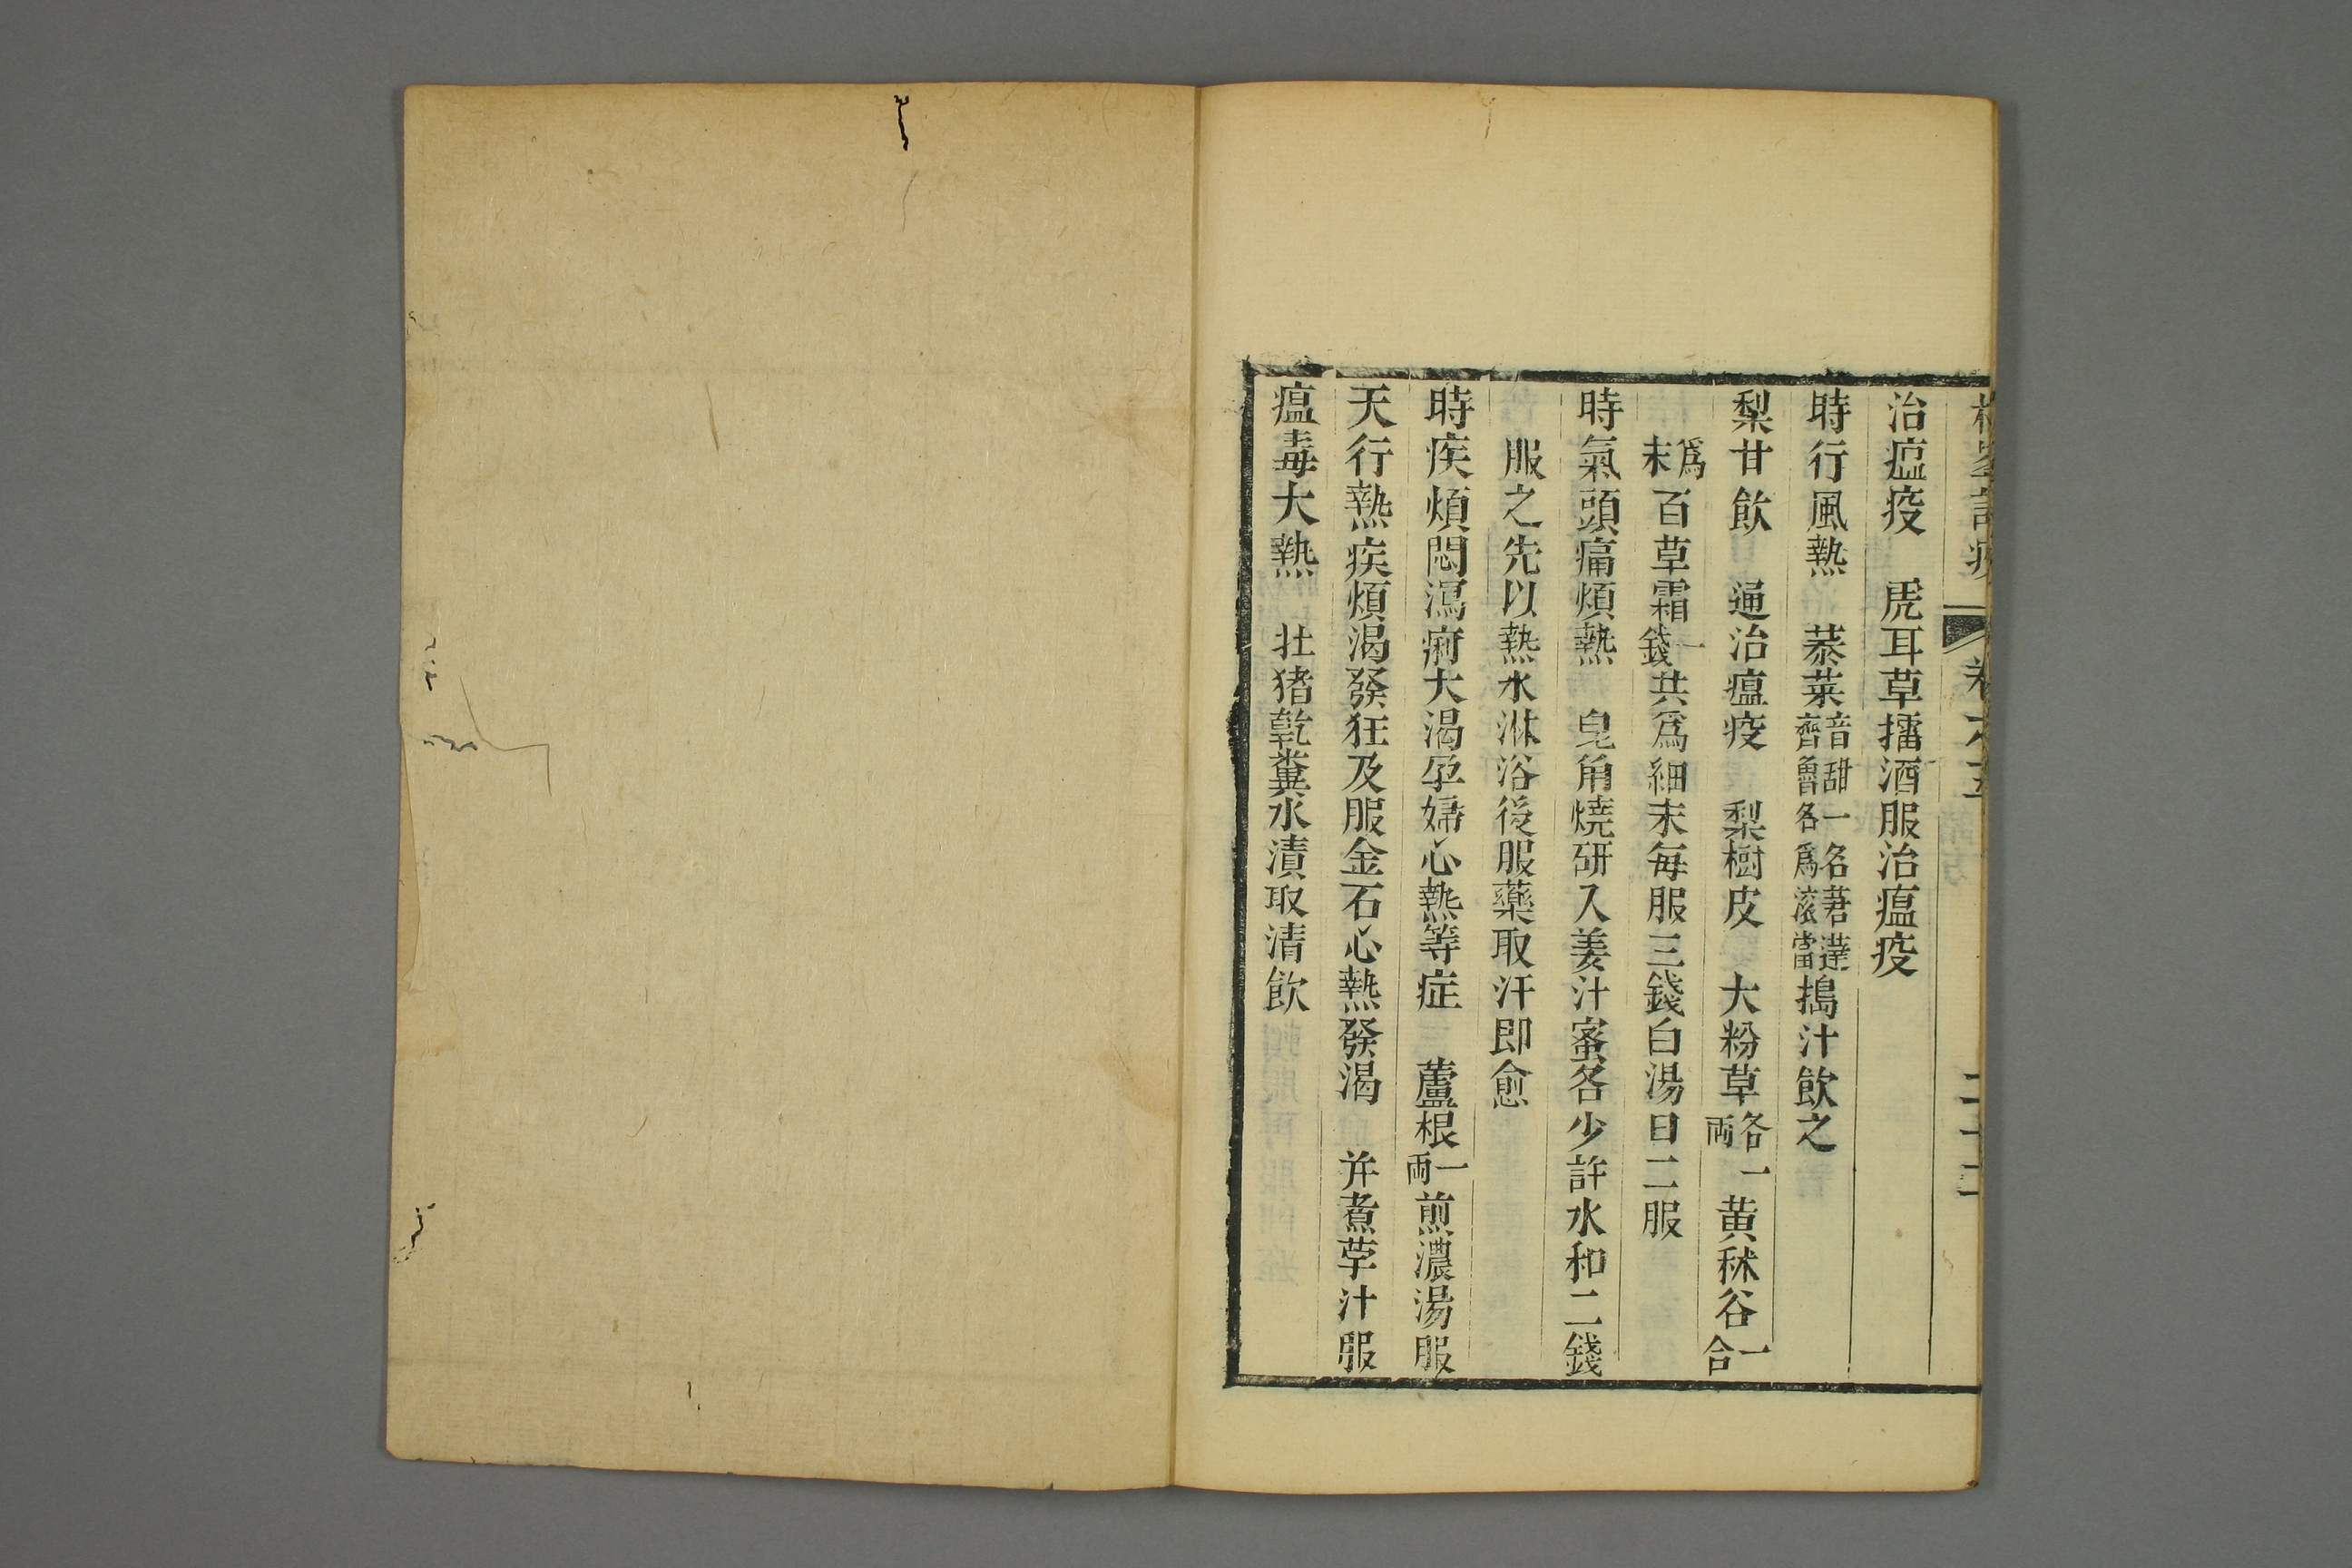 治瘟疫　虎耳草擂酒服治瘟疫
時行風熱　菾菜音甜一名莙薘齊魯各爲滚當搗汁飲之
梨甘飲　通治瘟疫　梨樹皮　大粉草各一両黄秫谷一合
爲末百草霜一錢共爲細末每服三錢白湯日二服
時氣頭痛煩熱　皂角燒研入姜汁蜜各少許水和二錢
服之先以熱水淋浴後服藥取汗即愈
時疾煩悶瀉痢大渴孕婦心熱等症　蘆根一両煎濃湯服
天行熱疾煩渴發狂及服金石心熱發渴　并煮苧汁服
瘟毒大熱　壮猪乾糞水漬取清飲